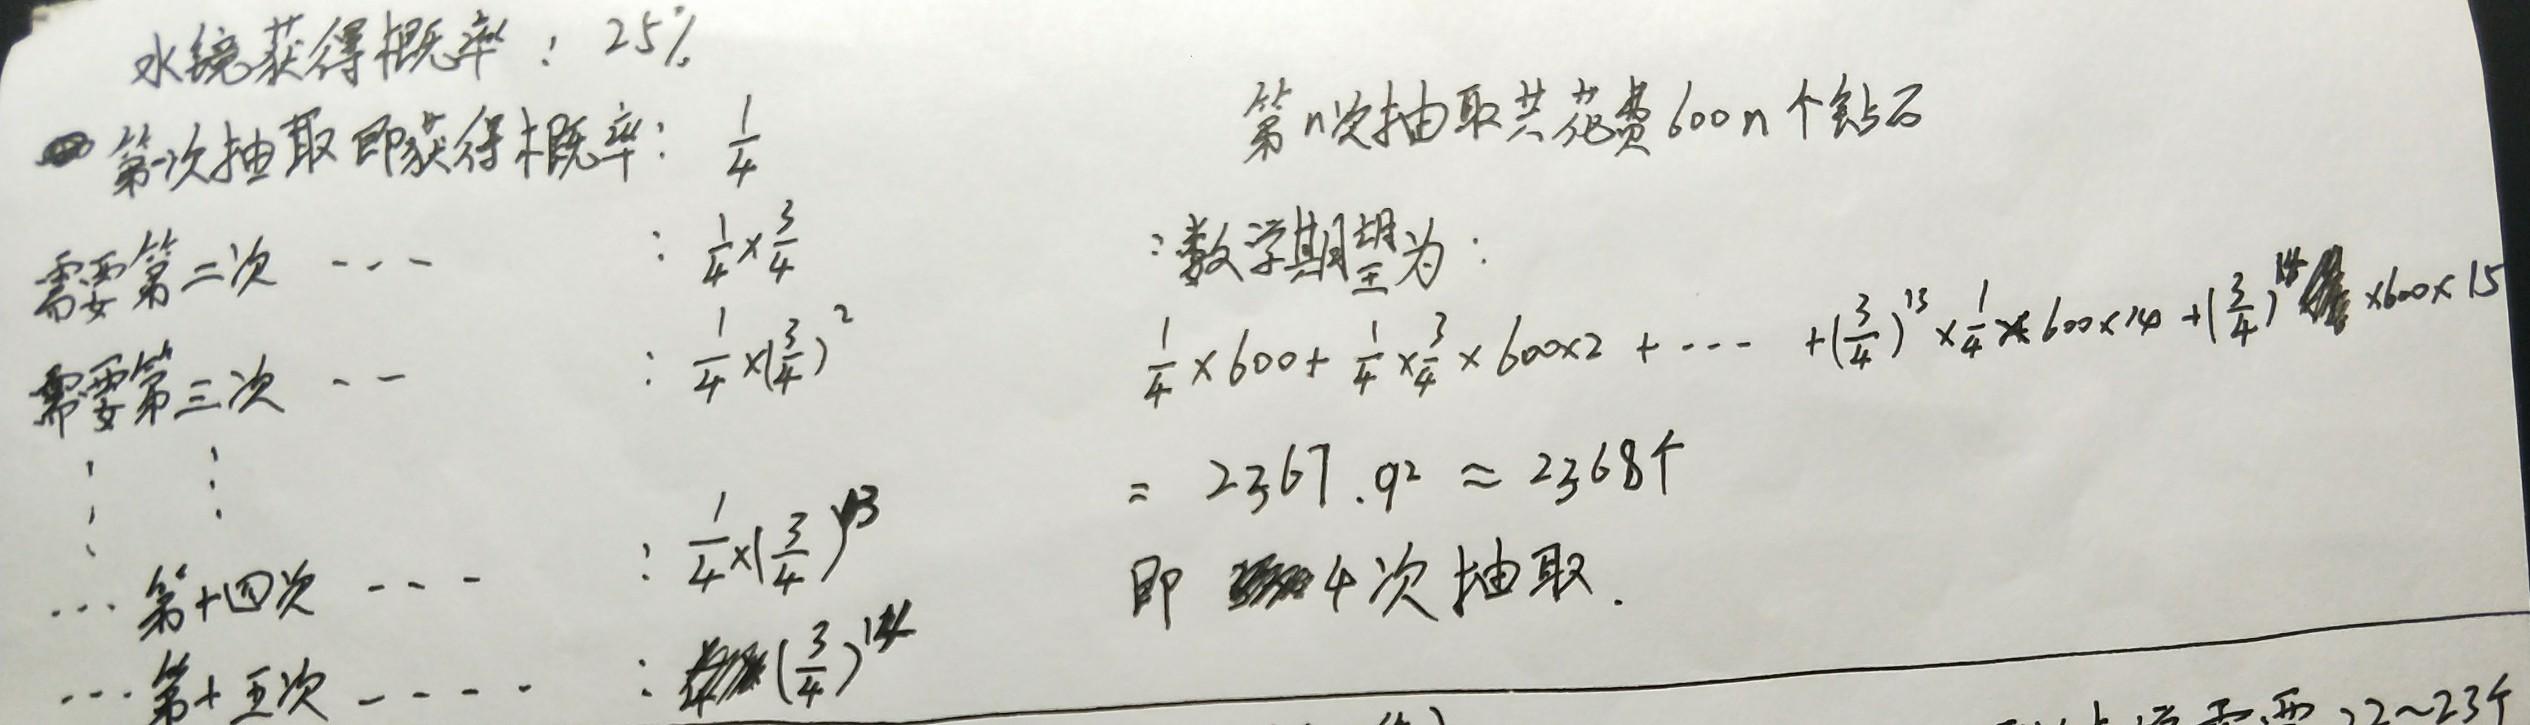 水镜获得概率: 25%
第一次抽取即获得概率: 1/4
需要第二次 --- : 1/4×3/4
需要第三次 -- : 1/4×(3/4)²
⋮ ⋮
... 第十四次 --- : 1/4×(3/4)¹³
... 第十五次 ---- : (3/4)¹⁴
第n次抽取共花费600n个钻石
:数学期望为:
1/4×600+1/4×3/4×600×2+---+(3/4)¹³×1/4×600×14+(3/4)¹⁴×600×15
= 2367.92≈2368个
即 4次抽取.
需要22~23个